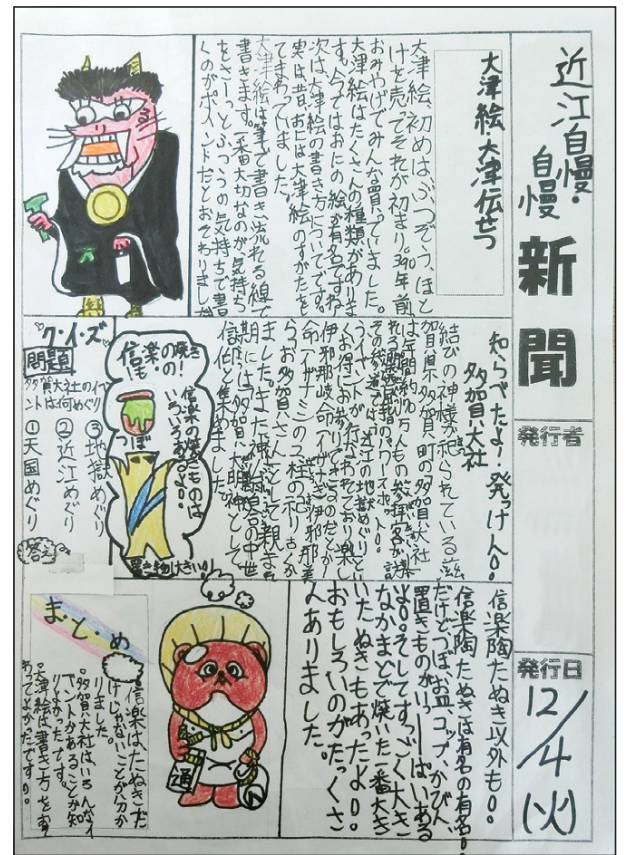 近江自慢・
自慢
新聞
発行者
発行日
12/4(火)
大津絵大津伝せつ
大津絵初めはぶつぞう、ほと
けを売ってそれが初まり。
おみやげでみんな買っていました。
大津絵はたくさんの種類がありま
す。今ではおにの絵が有名ですね。
次は大津絵の書き方についてです。
実は昔、おには大津絵のすがたを
てまわっていました。
大津絵は筆で書き、流れる線で
書きます。一番大切なのが気持ち
をさーっとふつうの気持ちで書
くのがポイントだとおそわりました
知らべたよ!発っけん。
多賀大社
結びの神様が祀られている滋
賀県多賀町の多賀大社
うイベントが行なわれており楽し
くお得にお参りできるのだとか!
伊邪那岐命(イザナギ)伊邪那美
命(イザナミ)の2柱の祀ること
ら、お多賀さんとして親しま
期には「多賀大明神」として
信仰を集めました。
ク・イ・ズ
問題
多賀大社のイベ
ントは何めぐり
③地獄めぐり
②近江めぐり
①天国めぐり
答え
信楽の焼き
もの
信楽の焼きものは
いろいろあるよ。
つぼ
置き物大きい!
信楽陶たぬき以外も。
信楽陶たぬきは有名の有名。
だけどつぼ、お皿、コップ、かびん、
置きものがいっーーぱいある
よ。そしてすっごく大き
なかまどで焼いた一番大き
いたぬきもあったよ。
おもしろいのがたっくさ
んありました。
通
ま・と・め
・信楽は、たぬきだ
けじゃないことが分か
りました。
・多賀大社はいろんなイ
ベントがあることが知
りよかったです。
・大津絵は書き方をお
あってよかったです。